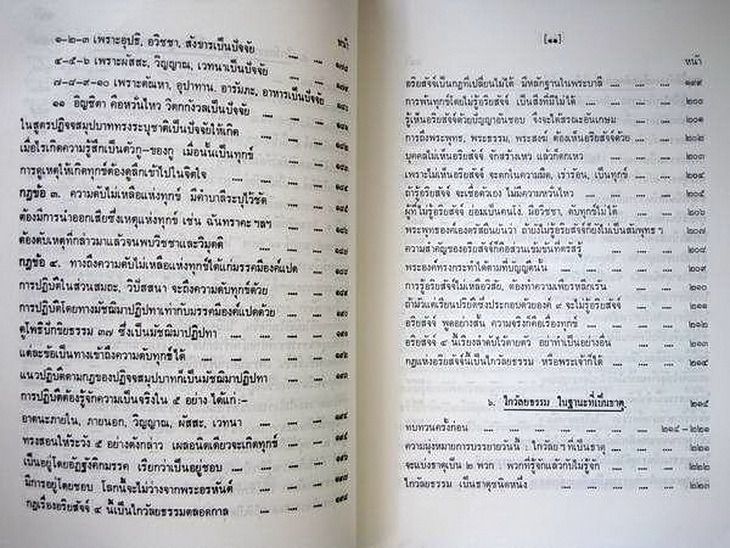 หน้า
๑-๒-๓ เพราะอุปธิ, อวิชชา, สังขารเป็นปัจจัย .... .... ๑๗๘
๔-๕-๖ เพราะผัสสะ, วิญญาณ, เวทนาเป็นปัจจัย .... ....
๗-๘-๙-๑๐ เพราะตัณหา, อุปาทาน, อารัมภะ, อาหารเป็นปัจจัย ....
๑๑ อิญชิตา คือหวั่นไหว วิตกกังวลเป็นปัจจัย .... ....
ในสูตรปฏิจจสมุปบาททรงระบุชาติเป็นปัจจัยให้เกิด .... ....
เมื่อไรเกิดความรู้สึกเป็นตัวกู-ของกู เมื่อนั้นเป็นทุกข์ .... ....
การดูเหตุให้เกิดทุกข์ต้องดูลึกเข้าไปในจิตใจ .... ....
กฎข้อ ๓. ความดับไม่เหลือแห่งทุกข์ มีคำบาลีระบุไว้ชัด ....
ต้องมีการนำออกเสียซึ่งเหตุแห่งทุกข์ เช่น ฉันทราคะ ฯลฯ ....
ต้องดับเหตุที่กล่าวมาแล้วจนพบวิชชาและวิมุตติ .... ....
กฎข้อ ๔. ทางถึงความดับไม่เหลือแห่งทุกข์ได้แก่มรรคมีองค์แปด
การปฏิบัติในส่วนสมถะ, วิปัสสนา จะถึงความดับทุกข์ด้วย ....
การปฏิบัติโดยทางมัชฌิมาปฏิปทาเท่ากับมรรคมีองค์แปดด้วย ....
ดูโพธิปักขิยธรรม ๓๗ ซึ่งเป็นมัชฌิมาปฏิปทา .... ....
แต่ละข้อเป็นทางเข้าถึงความดับทุกข์ได้ .... ....
แนวปฏิบัติตามกฎของปฏิจจสมุปบาทก็เป็นมัชฌิมาปฏิปทา ....
การปฏิบัติต้องรู้จักความเป็นจริงใน ๕ อย่าง ได้แก่:-
อายตนะภายใน, ภายนอก, วิญญาณ, ผัสสะ, เวทนา ....
ทรงสอนให้ระวัง ๕ อย่างดังกล่าว เผลอนิดเดียวจะเกิดทุกข์ ....
เป็นอยู่โดยอัฏฐังคิกมรรค เรียกว่าเป็นอยู่ชอบ .... ....
มีการอยู่โดยชอบ โลกนี้จะไม่ว่างจากพระอรหันต์ .... ....
กฎเรื่องอริยสัจจ์ ๔ นี้เป็นไกวัลยธรรมตลอดกาล .... ....
[๑๑]
หน้า
อริยสัจจ์เป็นกฎที่เปลี่ยนไม่ได้ มีหลักฐานในพระบาลี .... .... ๑๙๙
การพ้นทุกข์โดยไม่รู้อริยสัจจ์ เป็นสิ่งที่มีไม่ได้ .... .... ๒๐๐
รู้เห็นอริยสัจจ์ด้วยปัญญาอันชอบ จึงจะได้สรณะอันเกษม .... ๒๐๑
การถึงพระพุทธ, พระธรรม, พระสงฆ์ ต้องเห็นอริยสัจจ์ด้วย .... ๒๐๒
บุคคลไม่เห็นอริยสัจจ์ จักสร้างเหว แล้วก็ตกเหว .... .... ๒๐๓
เพราะไม่เห็นอริยสัจจ์ จะตกในความมืด, เร่าร้อน, เป็นทุกข์ .... ๒๐๔
ถ้ารู้อริยสัจจ์ จะเชื่อตัวเอง ไม่มีความหวั่นไหว .... .... ๒๐๕
ผู้ที่ไม่รู้อริยสัจจ์ ย่อมเป็นคนโง่, มีอวิชชา, ดับทุกข์ไม่ได้ .... ๒๐๖
พระพุทธองค์เองตรัสยืนยันว่า ถ้ายังไม่รู้อริยสัจจ์ก็ยังไม่เป็นสัมพุทธ ฯ ๒๐๗
ความสำคัญของอริยสัจจ์ก็คือส่วนเข้มข้นที่ตรัสรู้ .... .... ๒๐๘
พระองค์ทรงกระทำได้ตามที่บัญญัตินั้น .... .... .... ๒๐๙
การรู้อริยสัจจ์ไม่เหลือวิสัย, ต้องทำความเพียรหลีกเร้น .... ๒๑๐
ถ้ามัวแต่เรียนปริยัติซึ่งประกอบด้วยองค์ ๙ จะไม่รู้อริยสัจจ์ .... ๒๑๑
อริยสัจจ์ พูดอย่างสั้น ความจริงก็คือเรื่องทุกข์ .... .... ๒๑๒
อริยสัจจ์ ๔ นี้เรียงลำดับไว้ตายตัว อย่าทำเป็นอย่างอื่น .... ๒๑๓
กฎแห่งอริยสัจจ์นี้เป็นไกวัลยธรรม หรือพระเจ้าก็ได้ .... .... ๒๑๔
๖. ไกวัลยธรรม ในฐานะที่เป็นธาตุ. ๒๑๕
ทบทวนครั้งก่อน .... .... .... .... ๒๑๕-๒๒๑
ความมุ่งหมายการบรรยายวันนี้ : ไกวัลย ฯ ที่เป็นธาตุ .... .... ๒๒๑
จะแบ่งธาตุเป็น ๒ พวก : พวกที่รู้จักแล้วกับไม่รู้จัก .... .... ๒๒๒
ไกวัลยธรรม เป็นธาตุชนิดหนึ่ง .... .... .... .... ๒๒๓